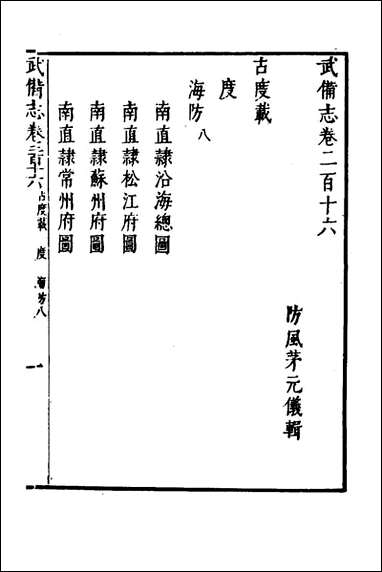 武備志卷二百十六
防風茅元儀輯
占度載
度
海防八
南直隸沿海總圖
南直隸松江府圖
南直隸蘇州府圖
南直隸常州府圖
武備志卷二百十六 占度載 度 海防八 一